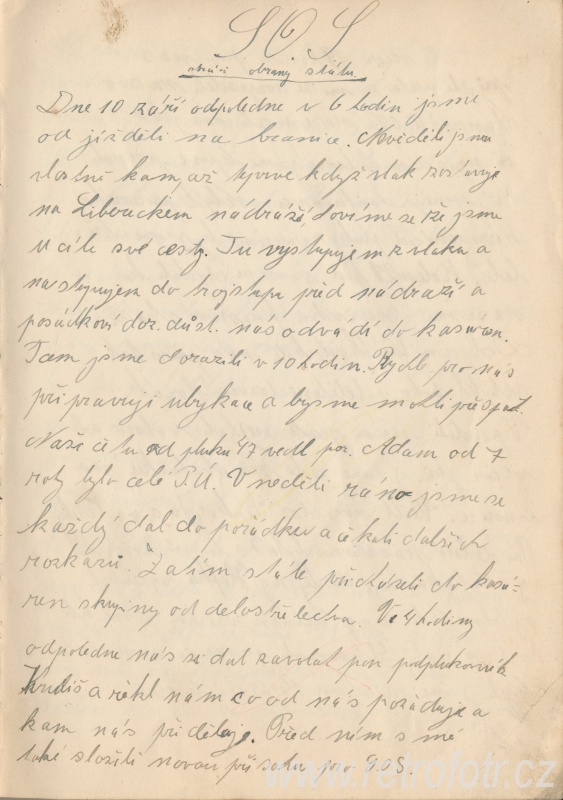 SOS
stráž obrany státu
Dne 10 září odpoledne v 6 hodin jsme
od jížděli na hranice. Nevěděli jsme
vlastně kam, až teprve když vlak zastavuje
na Libereckém nádraží, dovíme se že jsme
u cíle své cesty. Tu vystupujem z vlaku a
nastupujem do trojstupu před nádraží a
posádkoví doz. důst. nás odvádí do kasáren.
Tam jsme dorazili v 10 hodin. Rychle pro nás
připravují ubykace a bysme mohli přespat.
Naši četu od pluku 47 vedl por. Adam od 7
roty bylo celé P.Ú. V neděli ráno jsme se
každý dal do pořádku a čekali dalších
rozkazů. Zatím stále přicházeli do kasá-
ren skupiny od dělostřelectva. Ve 4 hodiny
odpoledne nás si dal zavolat pan podplukovník
a řekl nám co od nás požaduje a
kam nás přiděluje. Před ním sme
také složili novou přísahu pro S.O.S.
www.retrofotr.cz